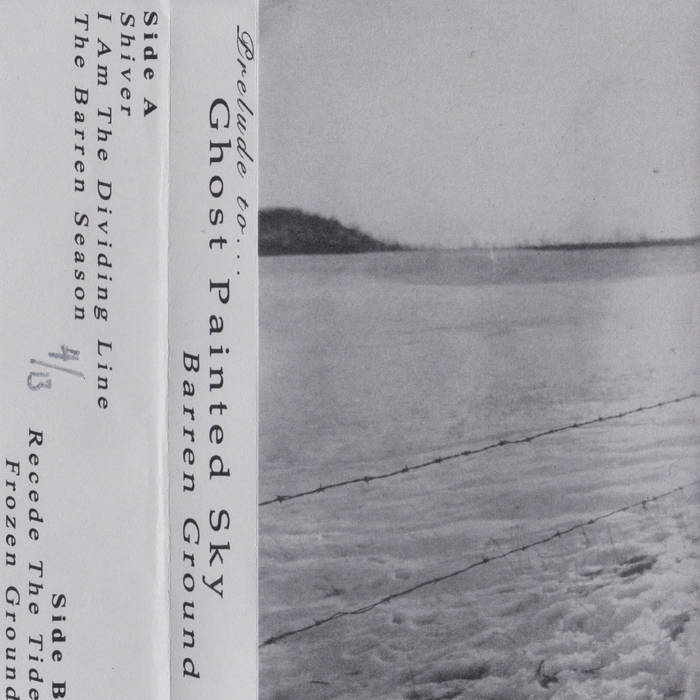 Prelude to...
Ghost Painted Sky
Barren Ground
Side A
Shiver
I Am The Dividing Line
The Barren Season
4/13
Side B
Recede The Tide
Frozen Ground